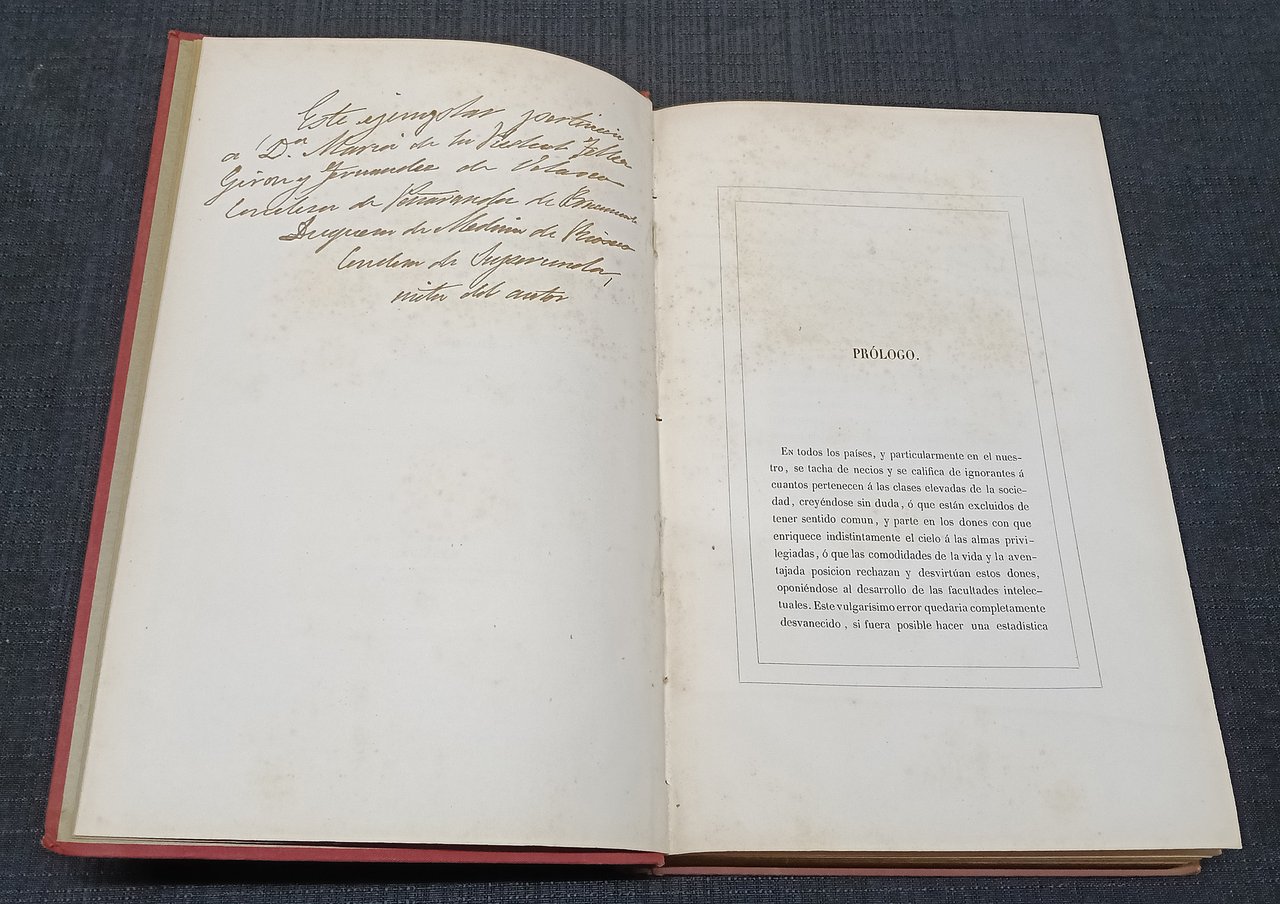 Este ejemplar perteneció
a Dª Maria de la Piedad Tellez
Giron y Fernandez de Velasco
Condesa de Peñaranda de Bracamonte
Duquesa de Medina de Rioseco
Condesa de Superunda,
nieta del autor
PRÓLOGO.
En todos los países, y particularmente en el nues-
tro, se tacha de necios y se califica de ignorantes á
cuantos pertenecen á las clases elevadas de la socie-
dad, creyéndose sin duda, ó que están excluidos de
tener sentido comun, y parte en los dones con que
enriquece indistintamente el cielo á las almas privi-
legiadas, ó que las comodidades de la vida y la aven-
tajada posicion rechazan y desvirtúan estos dones,
oponiéndose al desarrollo de las facultades intelec-
tuales. Este vulgarísimo error quedaria completamente
desvanecido, si fuera posible hacer una estadística